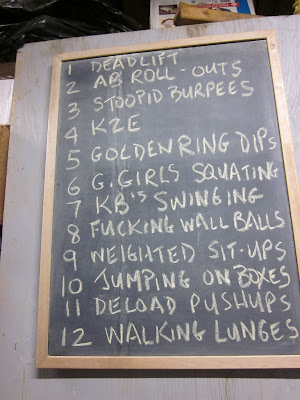 1 DEADLIFT
2 AB ROLL-OUTS
3 STOOPID BURPEES
4 K2E
5 GOLDEN RING DIPS
6 G.GIRLS SQUATING
7 KB'S SWINGING
8 FUCKING WALL BALLS
9 WEIGHTED SIT-UPS
10 JUMPING ON BOXES
11 DELOAD PUSHUPS
12 WALKING LUNGES